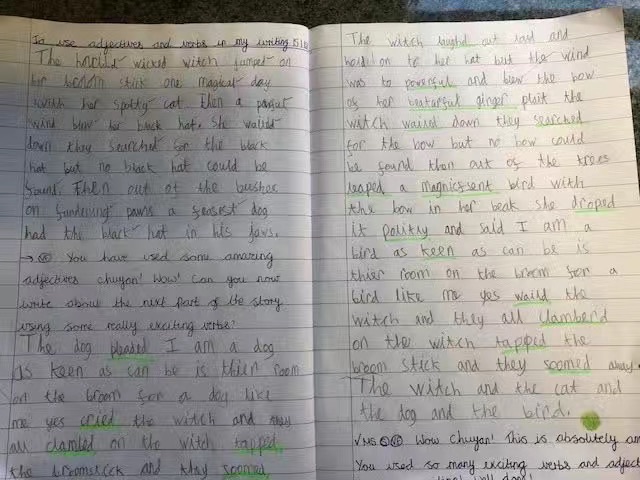 To use adjectives and verbs in my writing
The wicked witch jumpet on
her broom stik one magical day
with her spotty cat then a
wind blew her back hat. She wailed
down they searched for the black
hat but no black hat could be
found. Then out of the bushes
on paws a dog
had the black hat in his jaws.
→ You have used some amazing
adjectives Chuyan! Wow! Can you now
write about the next part of the story
using some really exciting verbs?
The dog pleaded I am a dog
as keen as can be is thier room
on the broom for a dog like
me yes cried the witch and they
all clambed on the witch tapped
the broomstick and they soomed
The witch laughd out laod and
hold on to her hat but the wind
was to powerful and blew the bow
of her beatarfull ginger plait the
witch waild down they searched
for the bow but no bow could
be found then out of the trees
leaped a magnicfsent bird with
the bow in her beak she droped
it politly and said I am a
bird as keen as can be is
thier room on the broom for a
bird like me yes waild the
witch and they all clamberd
on the witch tapped the
broom stick and they soomed away.
The witch and the cat and
the dog and the bird.
Wow Chuyan! This is absolutely am
You used so many exciting verbs and adject